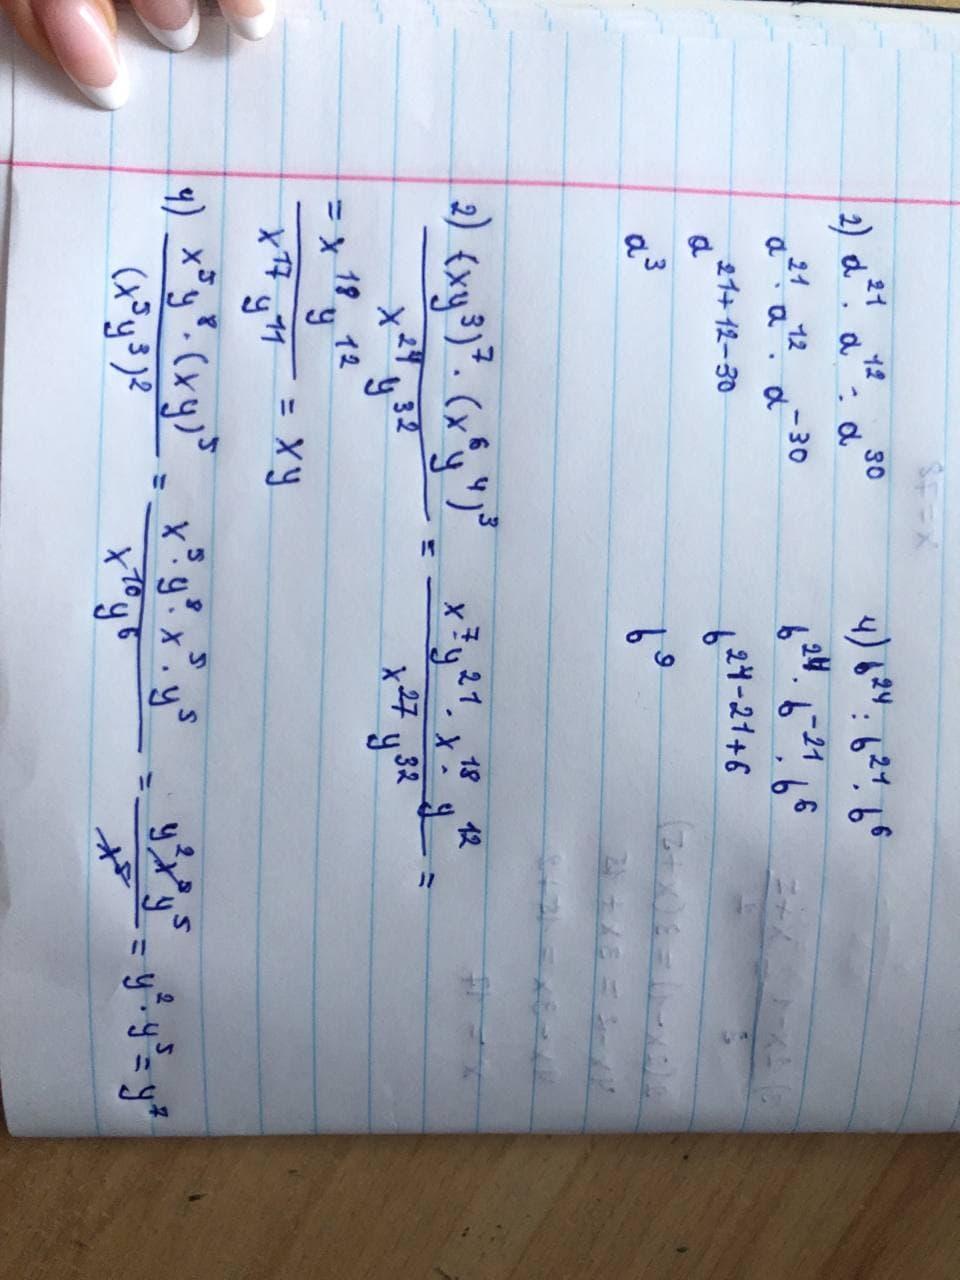 2) a²¹ · a¹² : a³⁰
a²¹ · a¹² · a⁻³⁰
a²¹⁺¹²⁻³⁰
a³
4) b²⁴ : b²¹ · b⁶
b²⁴ · b⁻²¹ · b⁶
b²⁴⁻²¹⁺⁶
b⁹
2) (xy³)⁷ · (x⁶y⁴)³ / x²⁴y³² = x⁷y²¹ · x¹⁸ · y¹² / x²⁷y³² =
= x¹⁸y¹² / x¹⁷y¹¹ = xy
4) x⁵y⁸ · (xy)⁵ / (x⁵y³)² = x⁵ · y⁸ · x⁵ · y⁵ / x¹⁰y⁶ = y²x⁵y⁵ / x⁵ = y² · y⁵ = y⁷